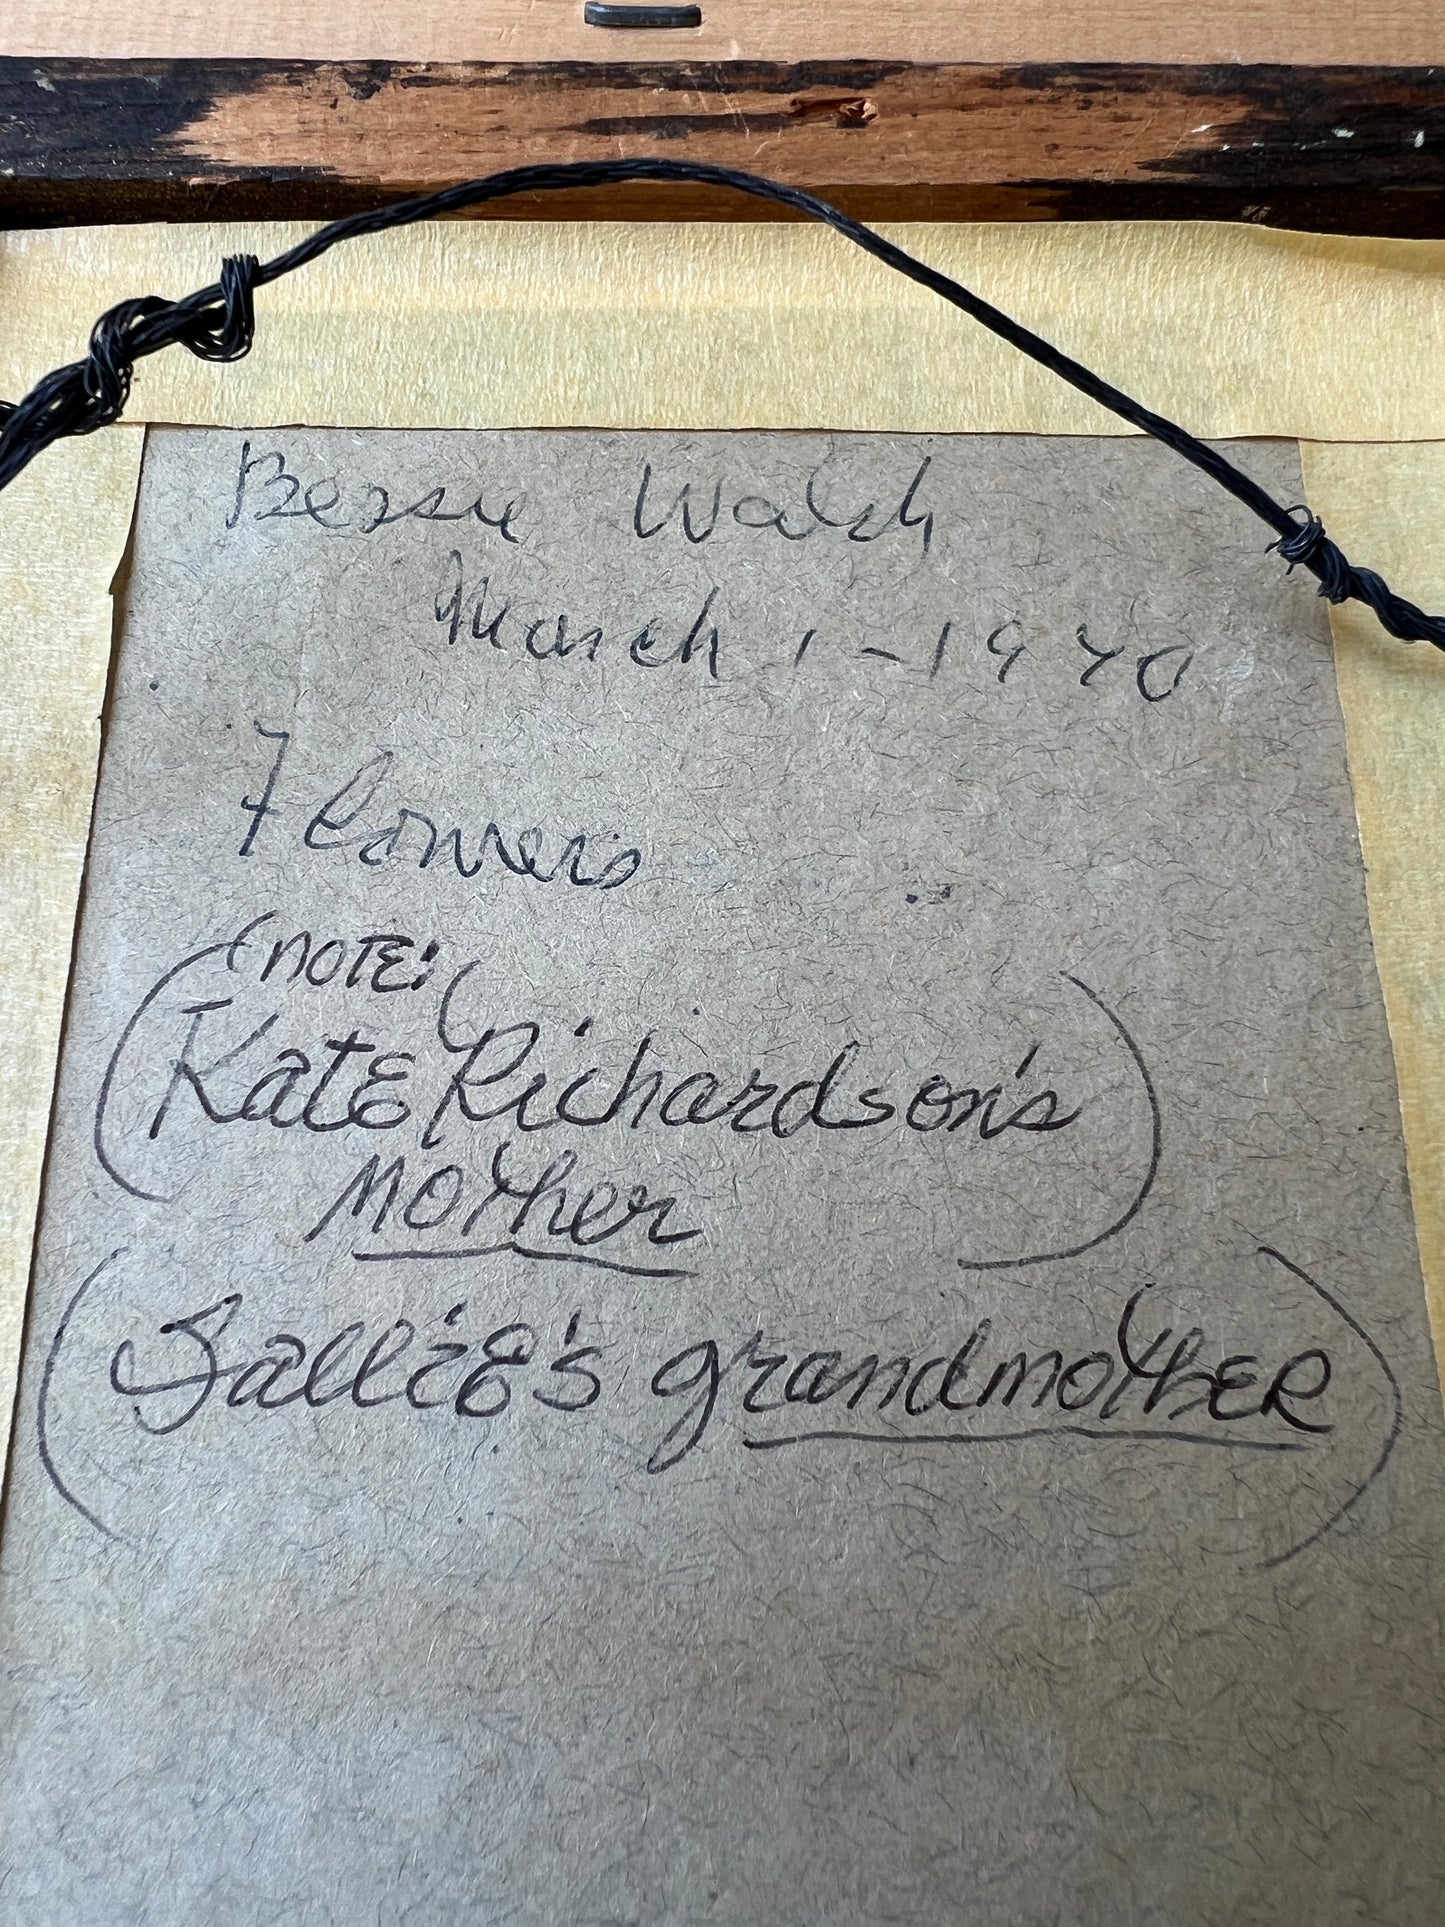 Bessie Walsh
March 1-1970
Flowers
(NOTE:
(Kate Richardson's
Mother)
(Sallie's grandmother)